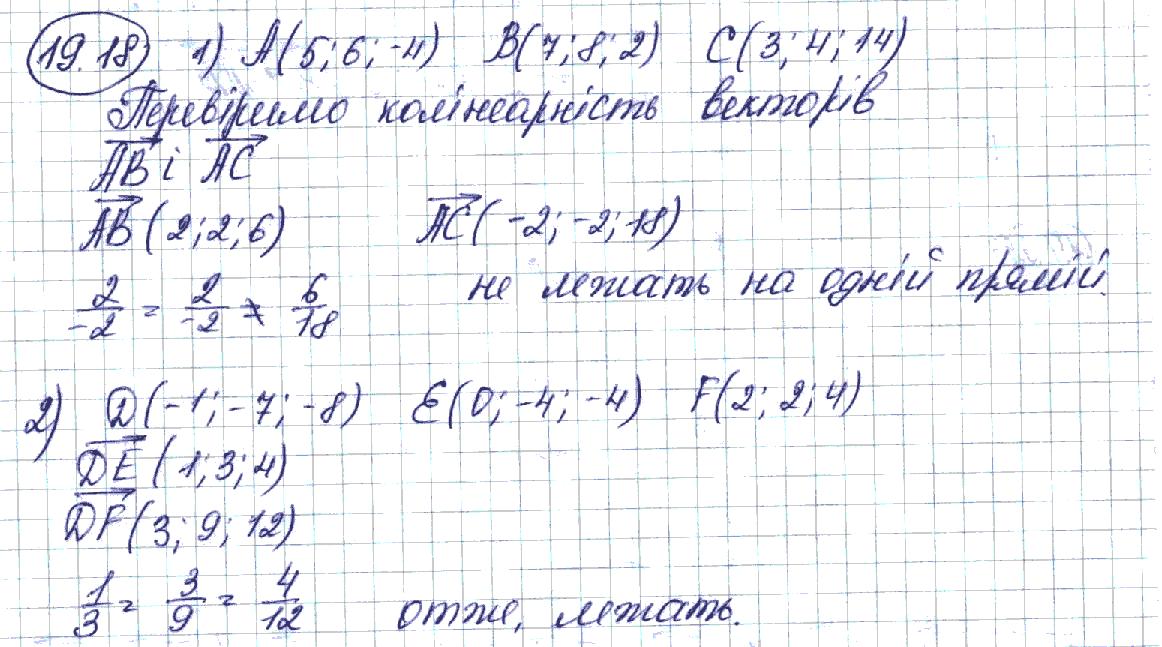 19.18 1) A(5; 6; -4) B(7; 8; 2) C(3; 4; 14)
Перевіримо колінеарність векторів
AB і AC
AB (2; 2; 6) AC (-2; -2; 18)
2/-2 = 2/-2 ≠ 6/18 не лежать на одній прямій.
2) D(-1; -7; -8) E(0; -4; -4) F(2; 2; 4)
DE (1; 3; 4)
DF (3; 9; 12)
1/3 = 3/9 = 4/12 отже, лежать.